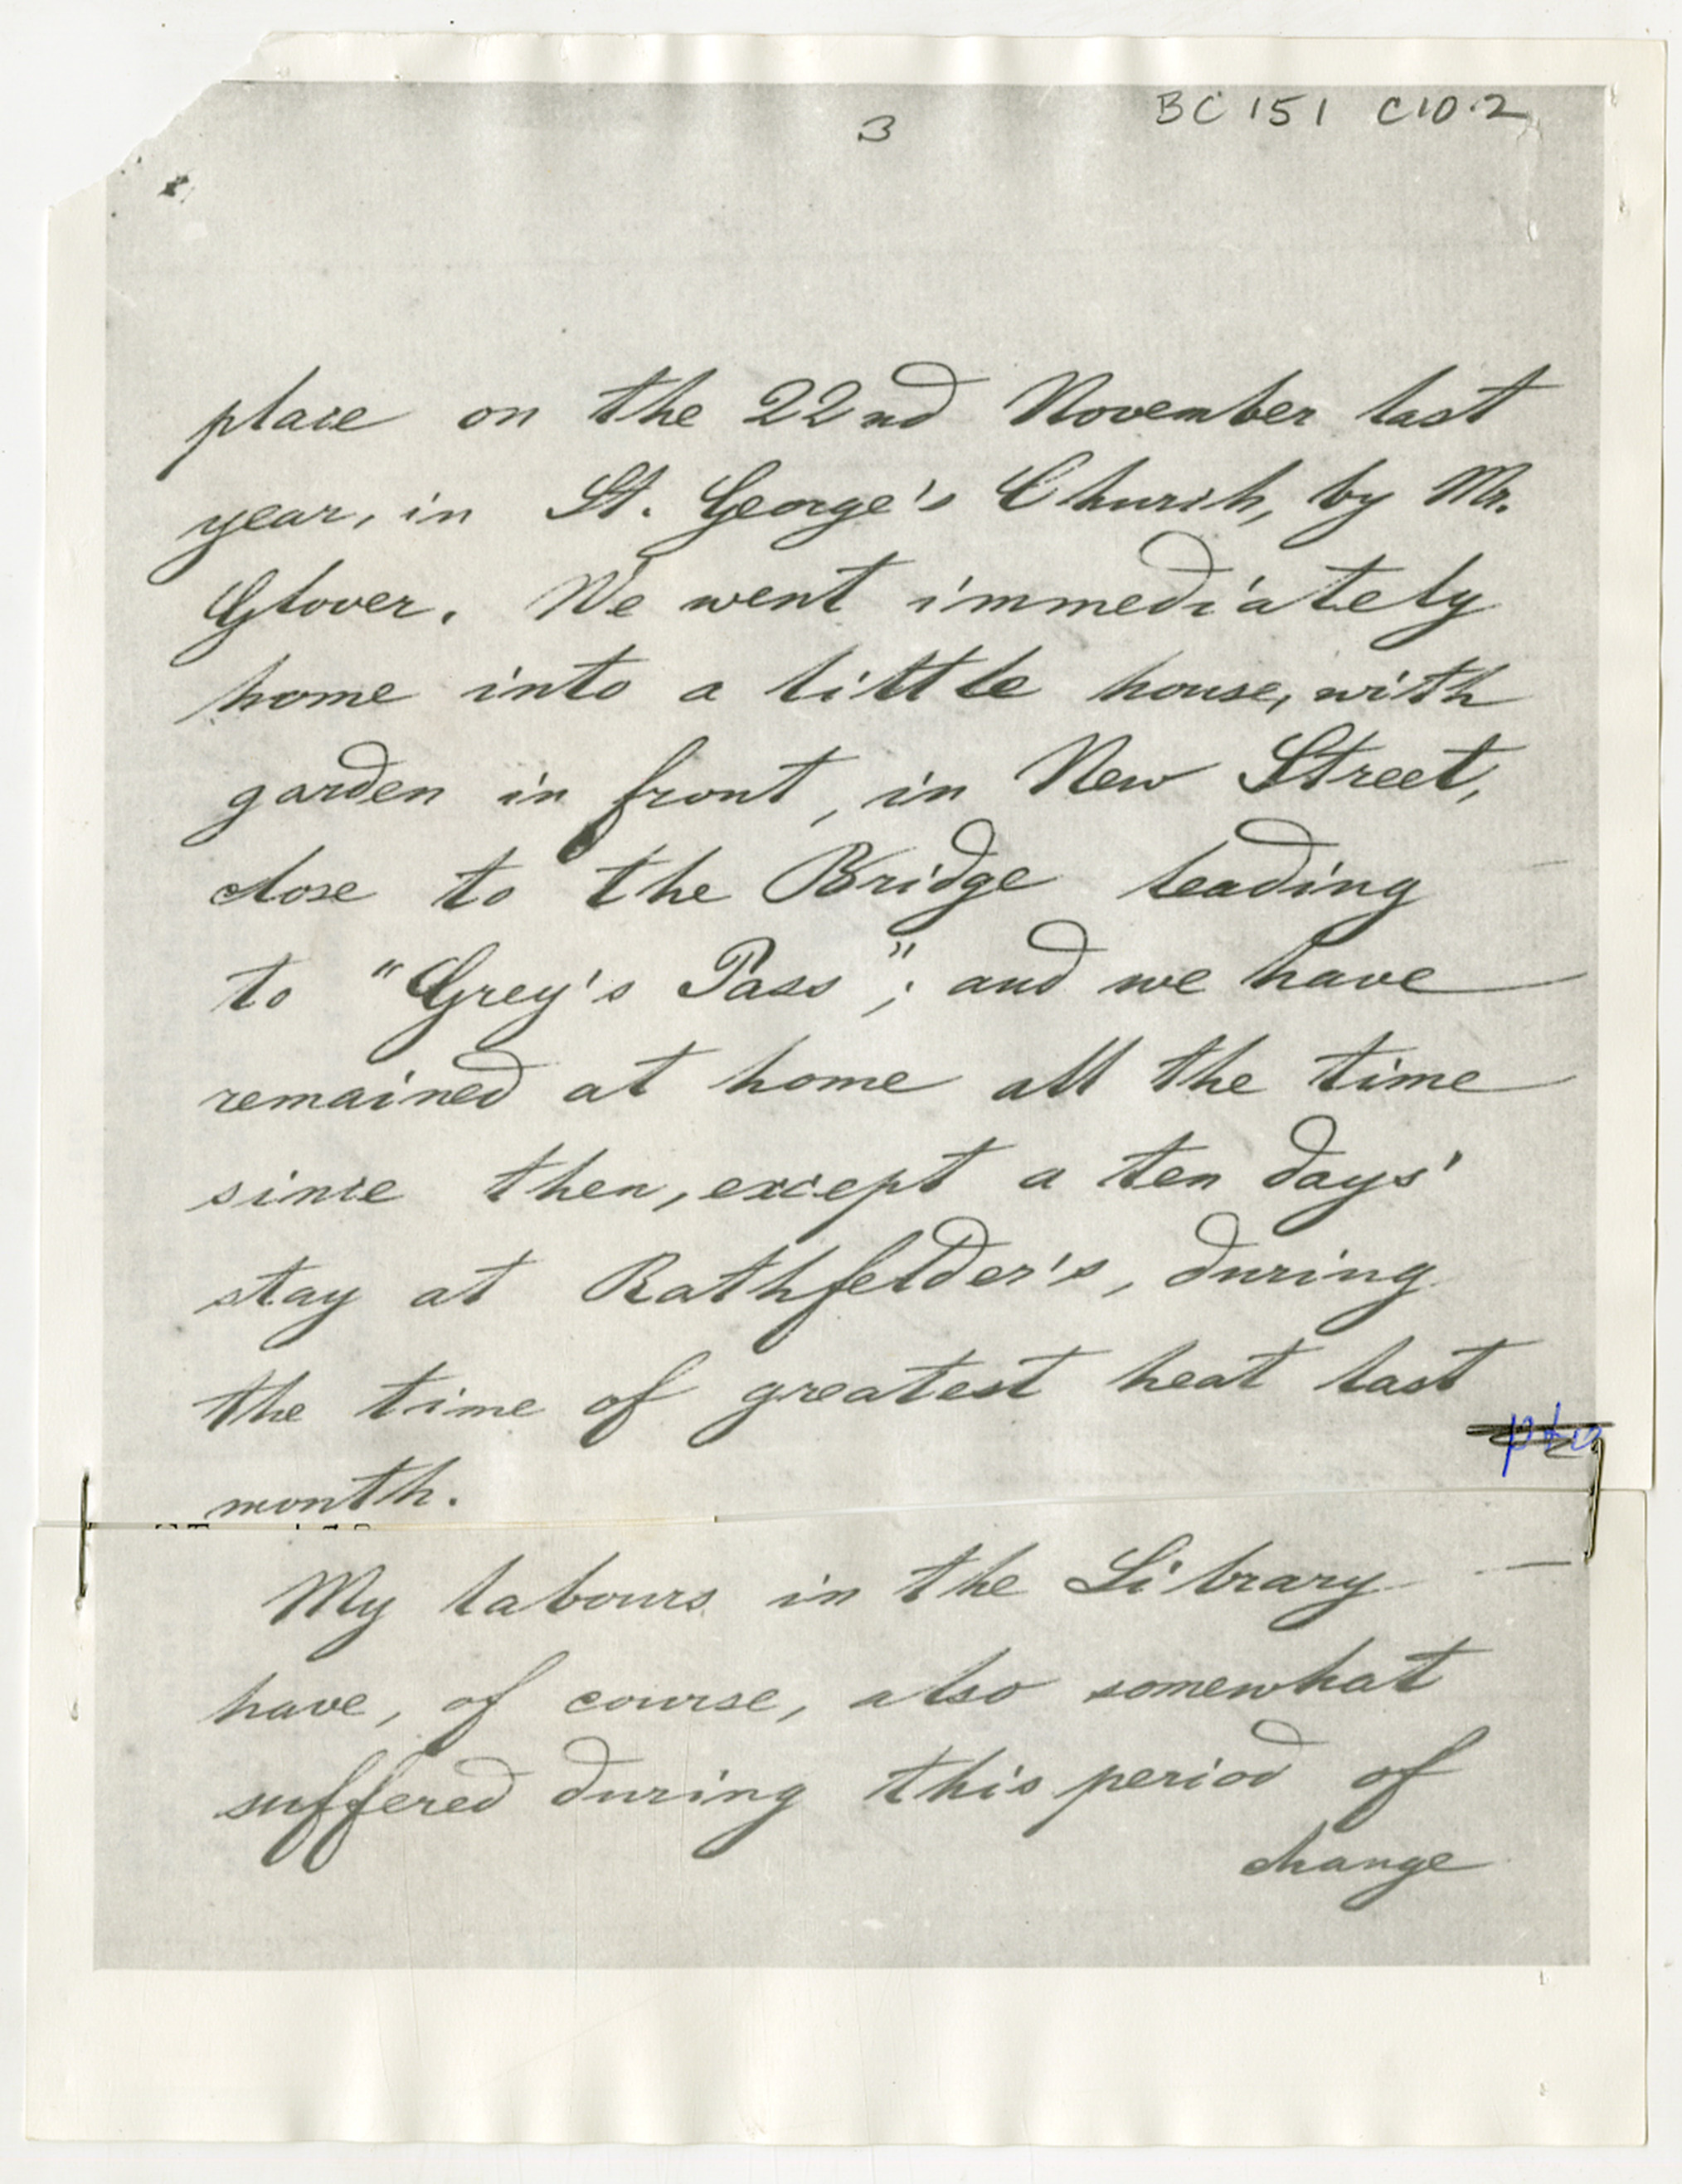 3
BC 151 C10.2
place on the 22nd November last
year, in St. George's Church, by Mr.
Glover. We went immediately
home into a little house, with
garden in front, in New Street,
close to the Bridge leading
to "Grey's Pass"; and we have
remained at home all the time
since then, except a ten days'
stay at Rathfelder's, during
the time of greatest heat last
pto
month.
My labours in the Library
have, of course, also somewhat
suffered during this period of
change